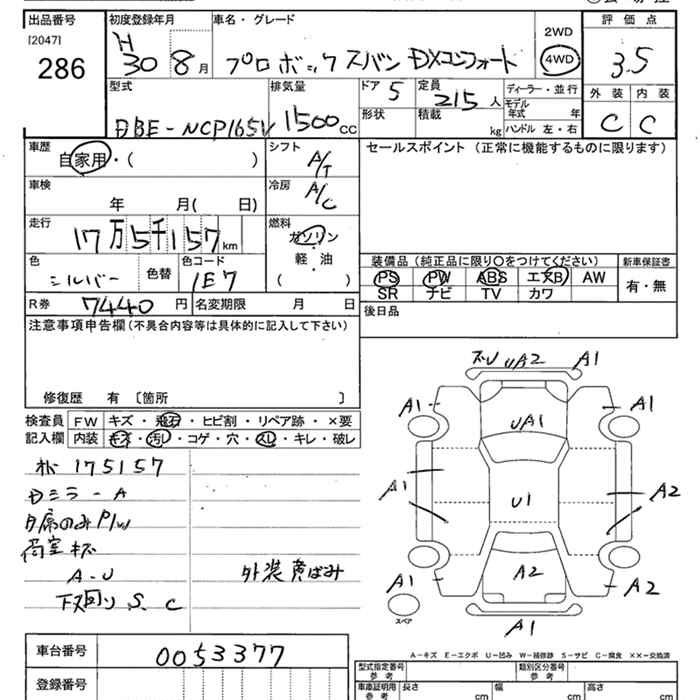 出品番号
[2047]
286
初度登録年月
H
30 8月
車名・グレード
プロボックスバン DXコンフォート
2WD
4WD
評価点
3.5
外装 内装
C C
型式
DBE-NCP165V
排気量
1500cc
ドア 5
形状
定員
215人
積載
kg
ディーラー・並行
モデル年式 年
ハンドル 左・右
車歴
自家用・( )
シフト
A/T
セールスポイント (正常に機能するものに限ります)
車検
年 月( 日)
冷房
A/C
走行
17万5千157km
燃料
ガソリン
軽・油
( )
色
シルバー
色替
色コード
1E7
装備品 (純正品に限り〇をつけてください)
PS PW ABS エアB AW
SR ナビ TV カワ
新車保証書
有・無
R券 7440円
名変期限 月 日
後日品
注意事項申告欄(不具合内容等は具体的に記入して下さい)
修復歴 有 〔箇所 〕
検査員記入欄
FW キズ・飛石・ヒビ割・リペア跡・×要
内装 キズ・汚レ・コゲ・穴・スレ・キレ・破レ
175157
Dミラ-A
荷室キズ
A-U
下廻り S. C
外装黄ばみ
ズU UA2 A1
A1 UA1 A1
A1 U1 A2
A1 A2 A2
スペア
A1
A-キズ E-エクボ U-凹み W-補修跡 S-サビ C-腐食 ××-交換済
車台番号
0053377
登録番号
型式指定番号
参考
類別区分番号
参考
車庫証明用
参考
長さ
cm
幅
cm
高さ
cm